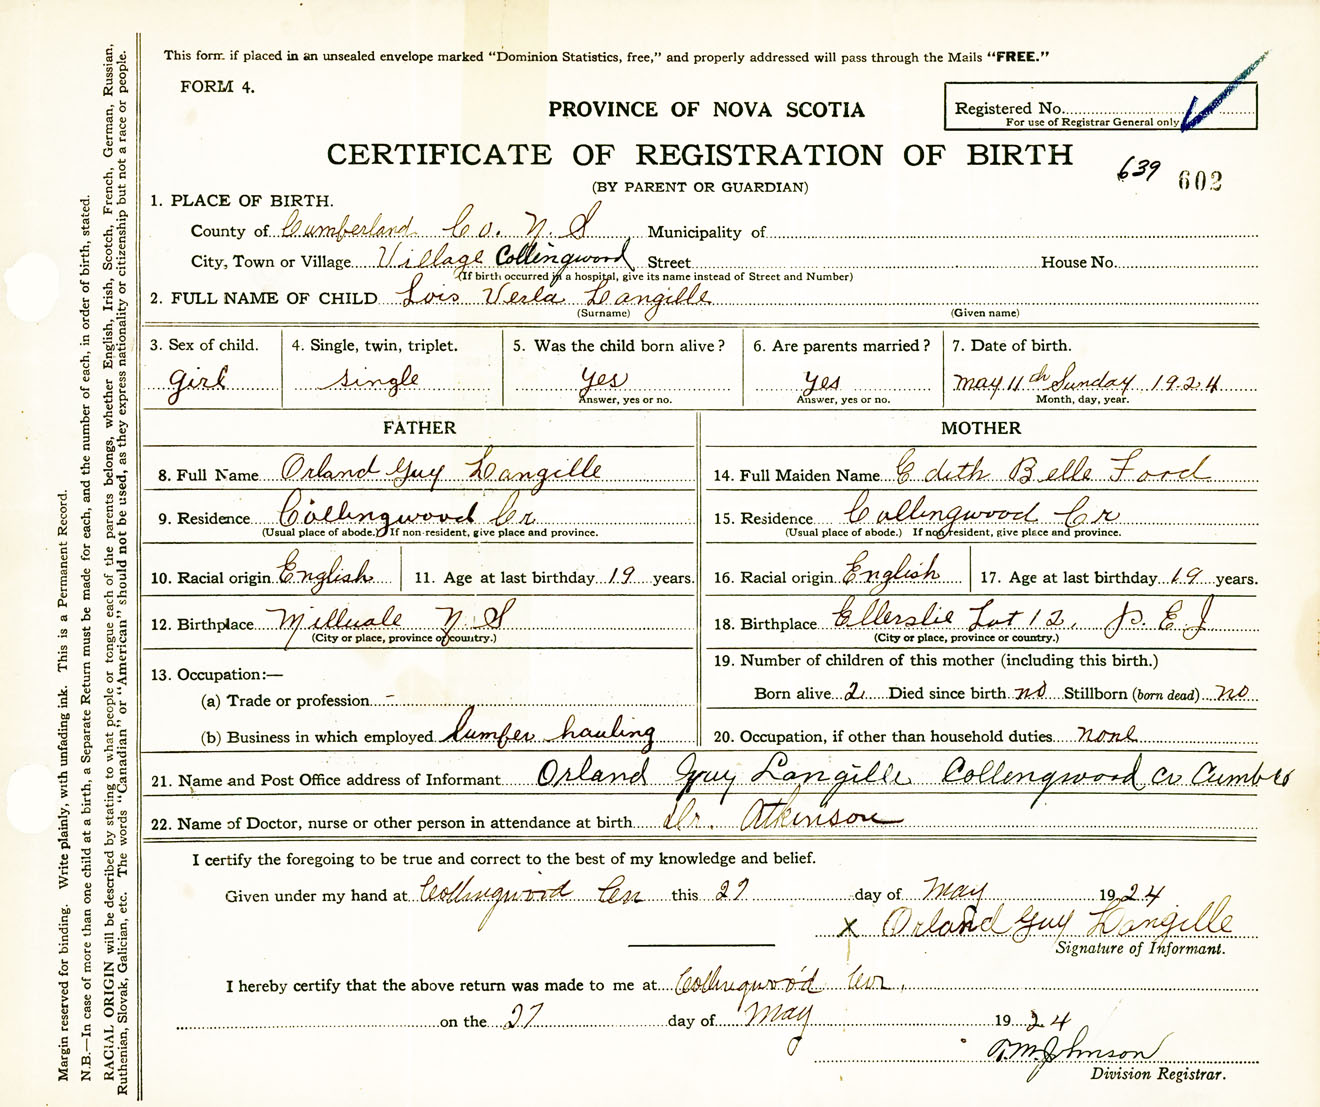 This form if placed in an unsealed envelope marked “Dominion Statistics, free,” and properly addressed will pass through the Mails “FREE.”
FORM 4.
Registered No.
For use of Registrar General only
PROVINCE OF NOVA SCOTIA
CERTIFICATE OF REGISTRATION OF BIRTH
639 602
(BY PARENT OR GUARDIAN)
1. PLACE OF BIRTH.
County of Cumberland Co. N. S Municipality of
City, Town or Village Village Collingwood Street House No.
(If birth occurred in a hospital, give its name instead of Street and Number)
2. FULL NAME OF CHILD Lois Verla Langille
(Surname) (Given name)
3. Sex of child. 4. Single, twin, triplet. 5. Was the child born alive? 6. Are parents married? 7. Date of birth.
girl single yes yes may 11th Sunday 1924
Answer, yes or no. Answer, yes or no. Month, day, year.
FATHER MOTHER
8. Full Name Orland Guy Langille 14. Full Maiden Name Edith Belle Ford
9. Residence Collingwood Cr 15. Residence Collingwood Cr
(Usual place of abode.) If non-resident, give place and province. (Usual place of abode.) If non-resident, give place and province.
10. Racial origin English 11. Age at last birthday 19 years. 16. Racial origin English 17. Age at last birthday 19 years.
12. Birthplace Millvale N. S 18. Birthplace Ellerslie Lot 12. P. E I
(City or place, province or country.) (City or place, province or country.)
13. Occupation:— 19. Number of children of this mother (including this birth.)
(a) Trade or profession - Born alive 2 Died since birth no Stillborn (born dead) no
(b) Business in which employed lumber hauling 20. Occupation, if other than household duties none
21. Name and Post Office address of Informant Orland Guy Langille Collengwood Cr Cumb Co
22. Name of Doctor, nurse or other person in attendance at birth Dr. Atkinson
I certify the foregoing to be true and correct to the best of my knowledge and belief.
Given under my hand at Collingwood this 27 day of May 1924
X Orland Guy Langille
Signature of Informant.
I hereby certify that the above return was made to me at Collingwood Cor.
on the 27 day of May 1924
T. M. Johnson
Division Registrar.
Margin reserved for binding. Write plainly, with unfading ink. This is a Permanent Record.
N.B.—In case of more than one child at a birth, a Separate Return must be made for each, and the number of each, in order of birth, stated.
RACIAL ORIGIN will be described by stating to what people or tongue each of the parents belongs, whether English, Irish, Scotch, French, German, Russian,
Ruthenian, Slovak, Galician, etc. The words “Canadian” or “American” should not be used, as they express nationality or citizenship but not a race or people.